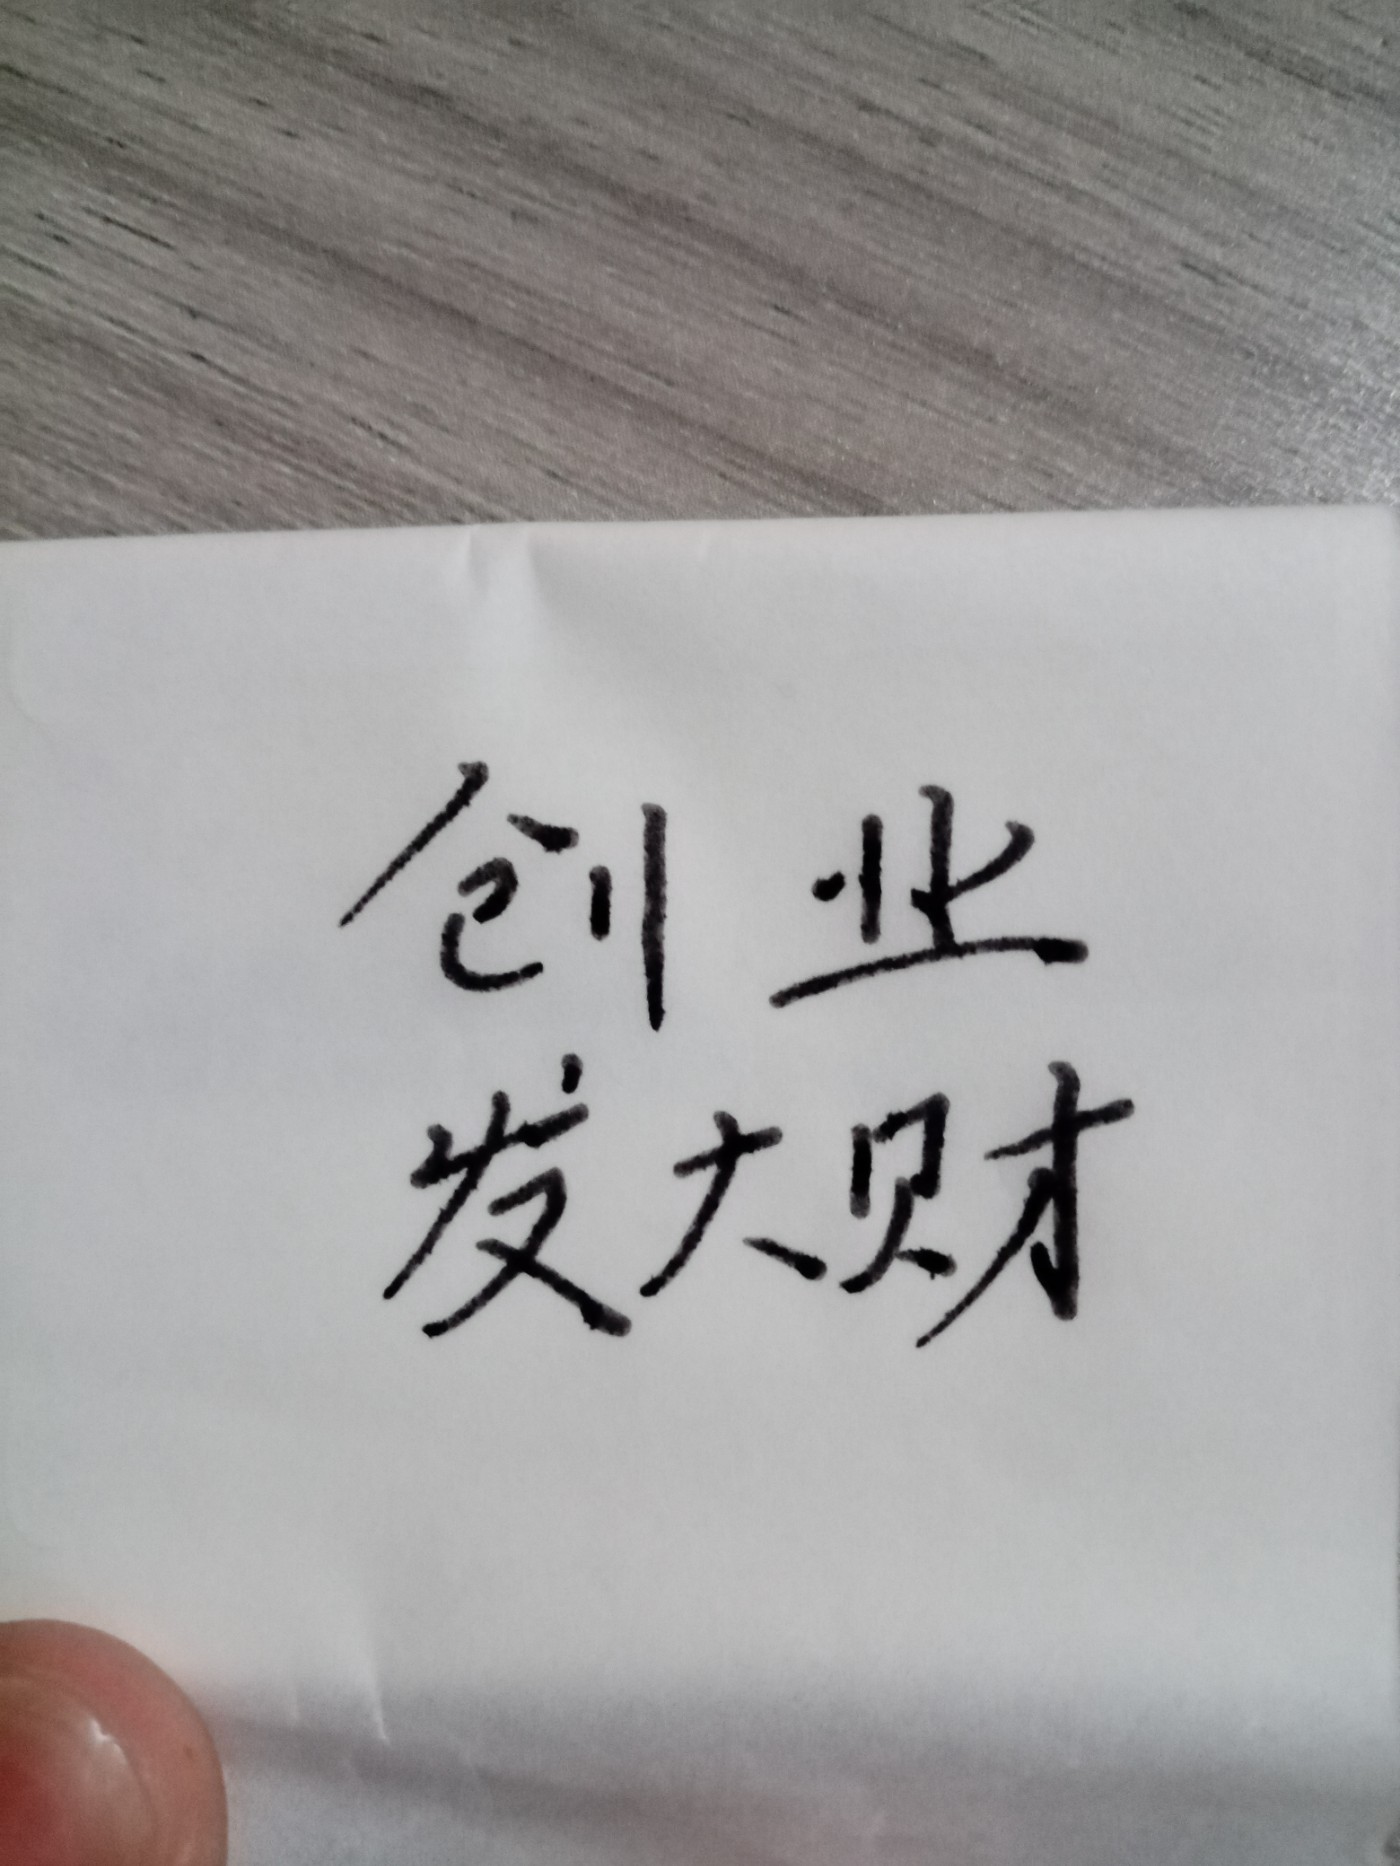 创业
发大财